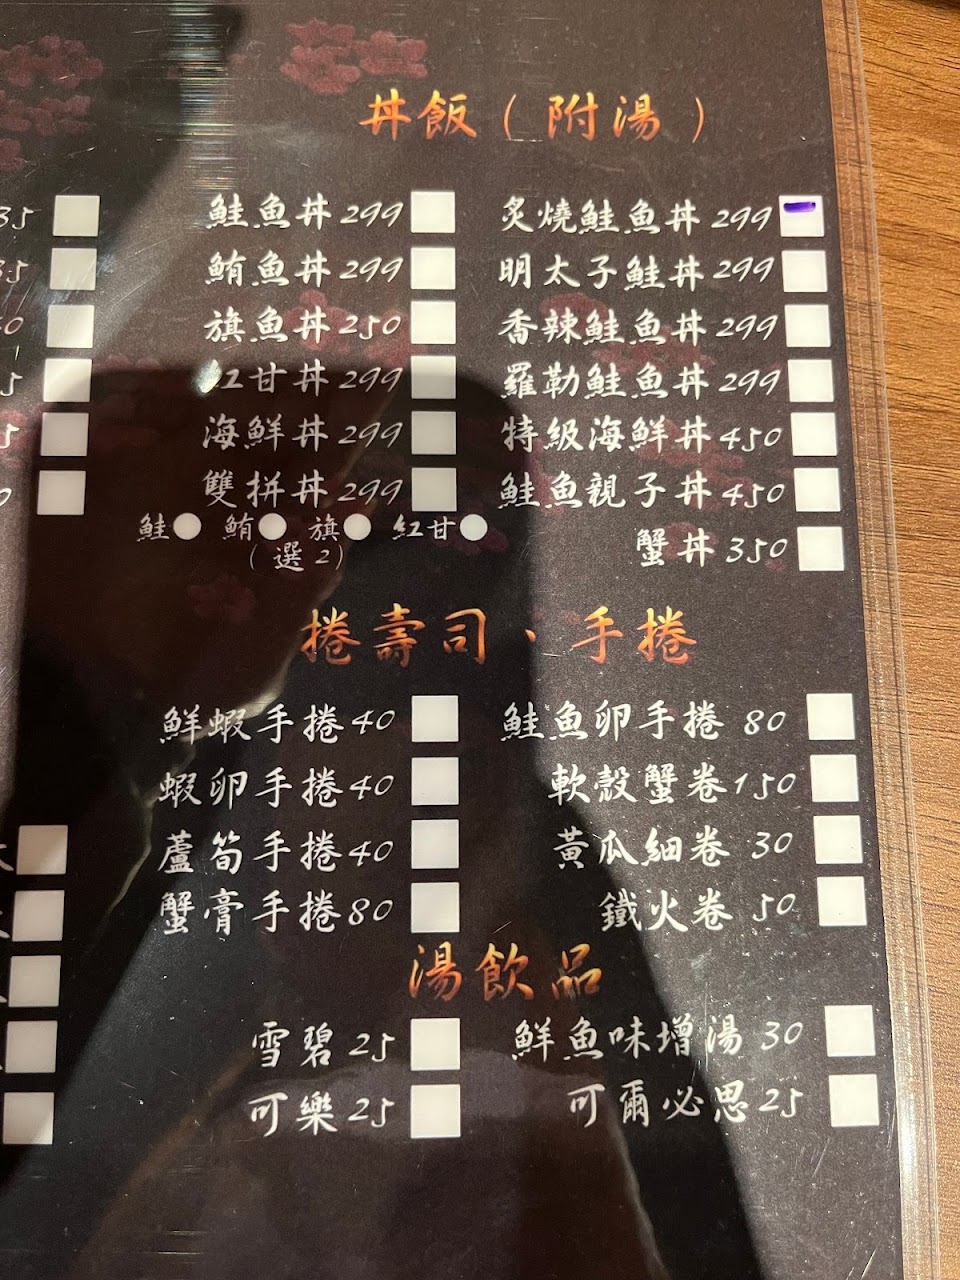 丼飯（附湯）
鮭魚丼299
鮪魚丼299
旗魚丼250
紅甘丼299
海鮮丼299
雙拼丼299
鮭 鮪 旗 紅甘
（選2）
炙燒鮭魚丼299
明太子鮭丼299
香辣鮭魚丼299
羅勒鮭魚丼299
特級海鮮丼450
鮭魚親子丼450
蟹丼350
捲壽司、手捲
鮮蝦手捲40
蝦卵手捲40
蘆筍手捲40
蟹膏手捲80
鮭魚卵手捲 80
軟殼蟹卷150
黃瓜細卷 30
鐵火卷 50
湯飲品
雪碧 25
可樂25
鮮魚味增湯 30
可爾必思25